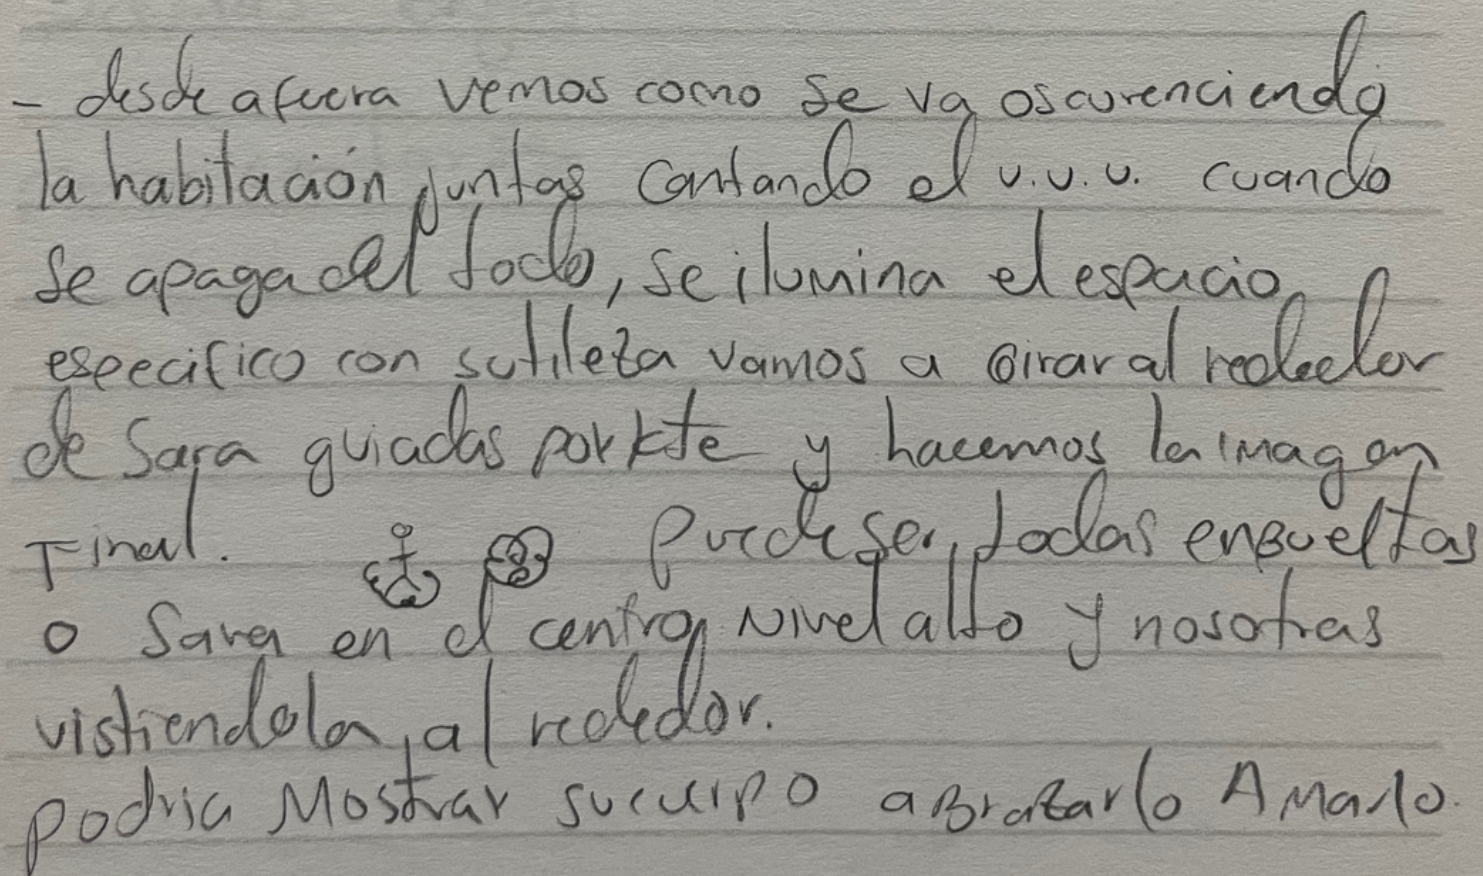 - desde afuera vemos como se va oscurenciendo
la habitación juntas cantando el u.u.u. cuando
se apaga del todo, se ilumina el espacio
especifico con sutileza vamos a Girar al rededor
de Sara guiadas por kte y hacemos la imagen
Final. Puede ser, todas envueltas
o Sara en el centro, Nivel alto y nosotras
vistiendola, al rededor.
podria Mostrar su cuerpo aBrazarlo AMarlo.